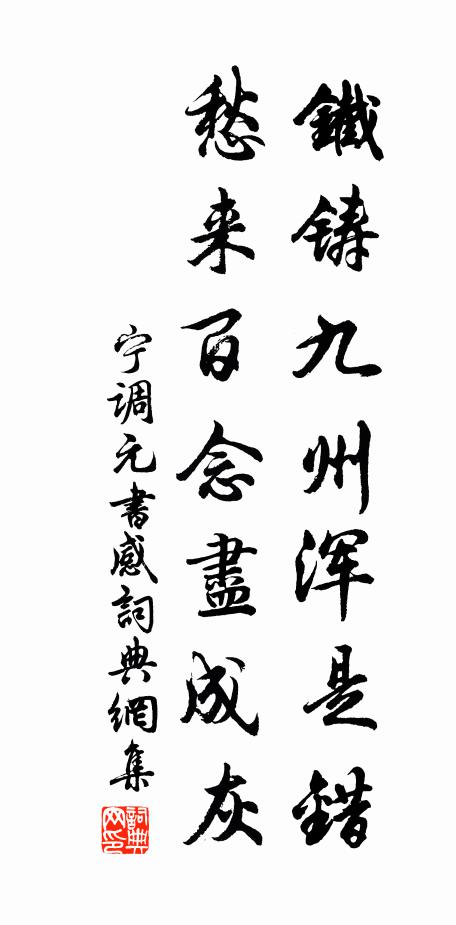 鐵铸九州浑是錯
愁来百念盡成灰
宁调元書感詞典網集
詞典网印